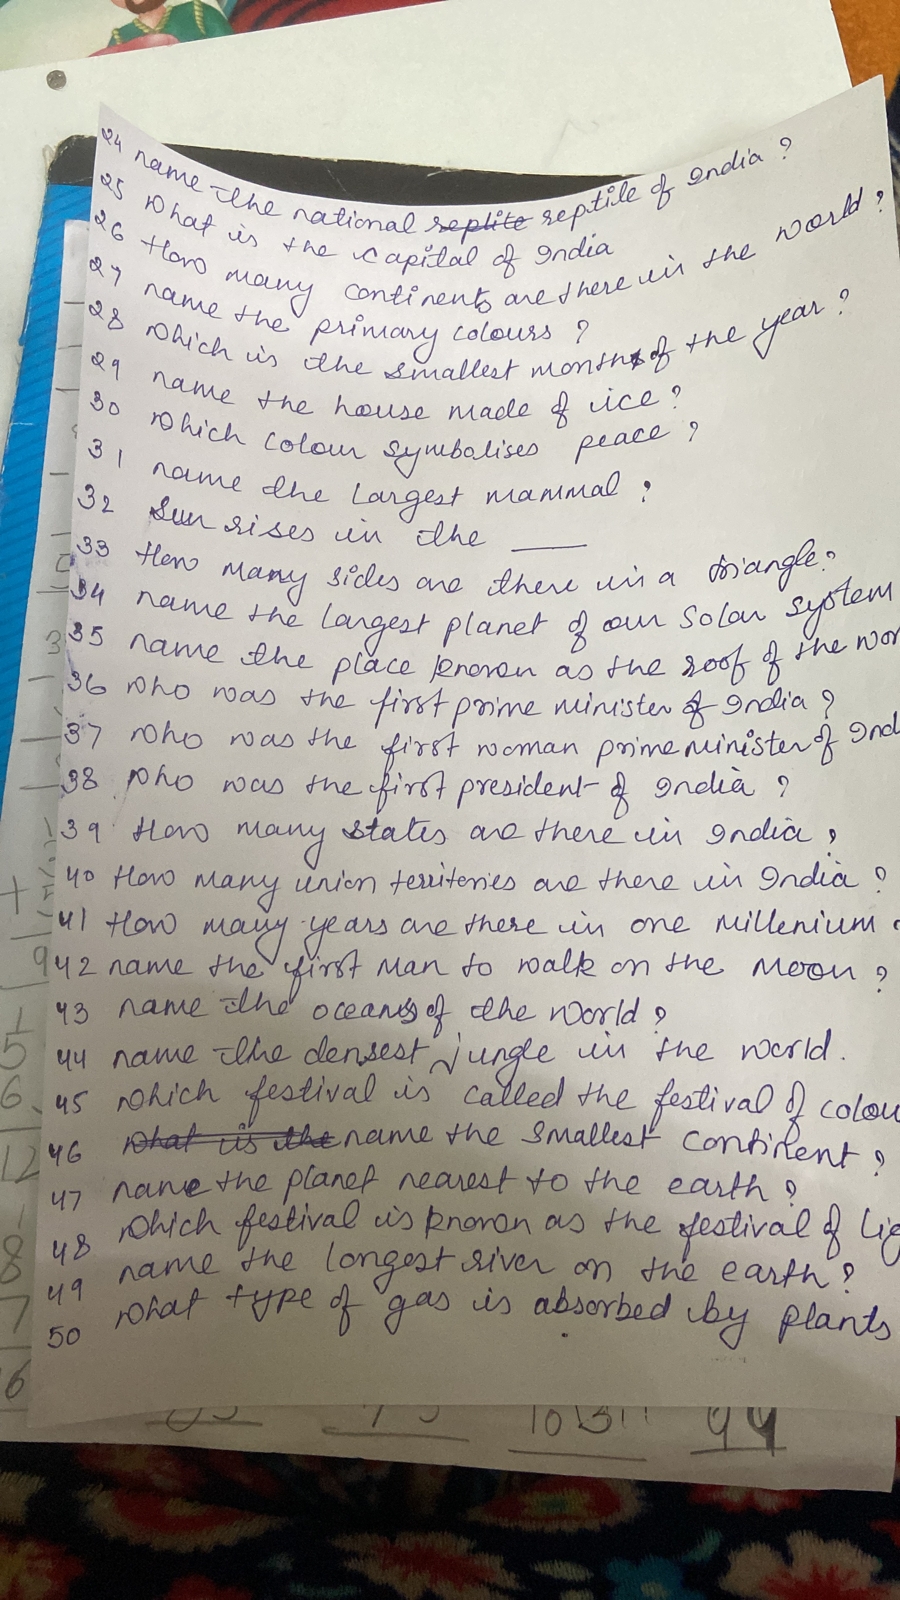 24 name the national replite reptile of India ?
25 What is the capital of India
26 How many continents are there in the world ?
27 name the primary colours ?
28 which is the smallest month of the year ?
29 name the house made of ice ?
30 which colour symbolises peace ?
31 name the largest mammal ?
32 Sun rises in the ___
33 How many sides are there in a triangle ?
34 name the largest planet of our Solar System
35 name the place known as the roof of the wor
36 who was the first prime minister of India ?
37 who was the first woman prime minister of Ind
38 who was the first president of India ?
39 How many states are there in India ?
40 How many union territories are there in India ?
41 How many years are there in one millenium
42 name the first man to walk on the Moon ?
43 name the oceans of the world ?
44 name the densest jungle in the world.
45 which festival is called the festival of colou
46 what is the name the smallest continent ?
47 name the planet nearest to the earth ?
48 which festival is known as the festival of lig
49 name the longest river on the earth ?
50 what type of gas is absorbed by plants
10 13 11 44